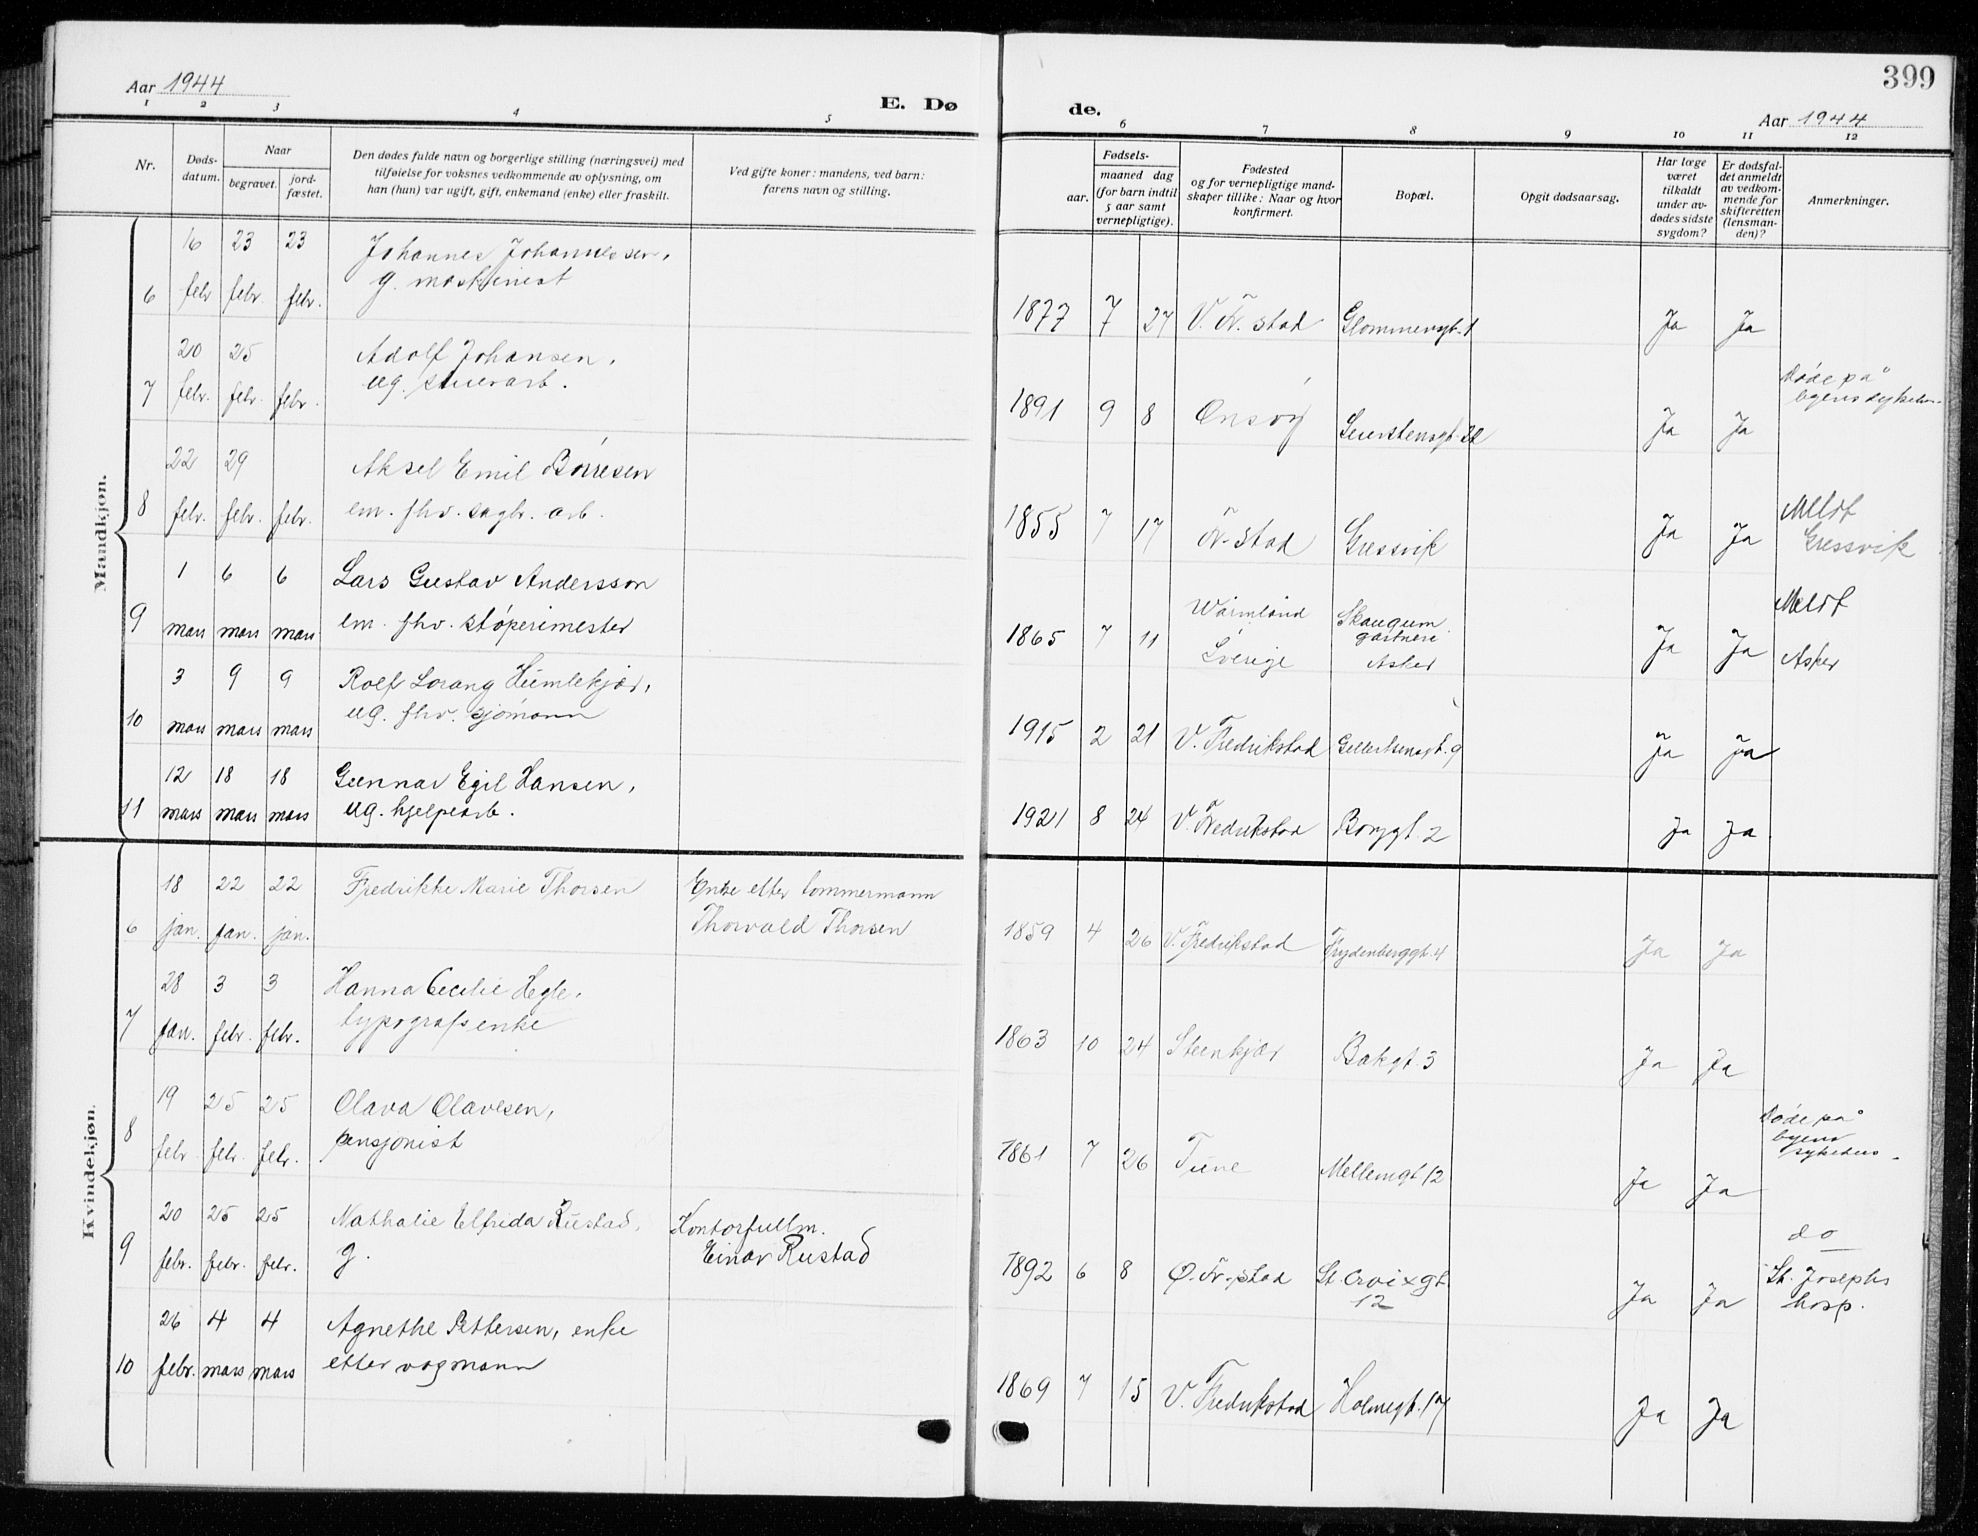 Aar 1944
E. Dø
1 2 3 4 5
Nr.
Døds-
datum.
Naar
begravet.
jord-
fæstet.
Den dødes fulde navn og borgerlige stilling (næringsvei) med
tilføielse for voksnes vedkommende av oplysning, om
han (hun) var ugift, gift, enkemand (enke) eller fraskilt.
Ved gifte koner: mandens, ved barn:
farens navn og stilling.
Mandkjøn.
16 23 23 Johannes Johannessen,
6 febr febr. febr. g. maskinist
20 25 Adolf Johansen,
7 febr. febr. febr. ug. stuerarb.
22 29 Aksel Emil Börresen
8 febr. febr. febr. em. fhv. sagbr. arb.
1 6 6 Lars Gustav Andersson
9 mars mars mars em. fhv. stóperimester
3 9 9 Rolf Lorang Humlekjær,
10 mars mars mars ug. fhv. sjómann
12 18 18 Gunnar Egil Hansen,
11 mars mars mars ug. hjelpearb.
Kvindekjøn.
18 22 22 Fredrikke Marie Thorsen Enke etter tommermann
6 jan. jan. jan. Thorvald Thorsen
28 3 3 Hanna Cecilie Hegle,
7 jan. febr. febr. typografsenke
19 25 25 Olava Olavesen,
8 febr. febr. febr. pensjonist
20 25 25 Nathalie Elfrida Rustad, Kontorfullm.
9 febr. febr. febr. g. Einar Rustad
26 4 4 Agnethe Pettersen, enke
10 febr. mars mars etter vognmann
399
de.
Aar 1944
6 7 8 9 10 11 12
Fødsels-
aar.
maaned dag
(for barn indtil
5 aar samt
vernepligtige).
Fødested
og for vernepligtige mand-
skaper tillike: Naar og hvor
konfirmert.
Bopæl.
Opgit dødsaarsag.
Har læge
været
tilkaldt
under av-
dødes sidste
sygdom?
Er dødsfal-
det anmeldt
av vedkom-
mende for
skifteretten
(lensman-
den)?
Anmerkninger.
1877 7 27 V. Fr. stad Glommengt. 1 Ja Ja
Döde på
byens sykehus.
1891 9 8 Onsöy Leiestensgt. 22 Ja Ja
Meldt
1855 7 17 Fr-stad Gressvik Ja Ja Gressvik
Wärmland Skaugum Meldt
1865 7 11 gartneri Ja Ja
Sverige Asker Asker
1915 2 21 V. Fredrikstad Gellertsensgt. 9 Ja Ja
1921 8 24 V. Fredrikstad Borggt. 2 Ja Ja
1859 4 26 V. Fredrikstad Frydenberggt. 4 Ja Ja
1863 10 24 Steenkjær Bakgt. 3 Ja Ja
Döde på
byens
sykehus.
1861 7 26 Tune Mellemgt 12 Ja Ja
do
1892 6 8 Ø. Fr-stad St. Croixgt. Ja Ja St. Josephs
12 hosp.
1869 7 15 V. Fredrikstad Holmegt. 17 Ja Ja